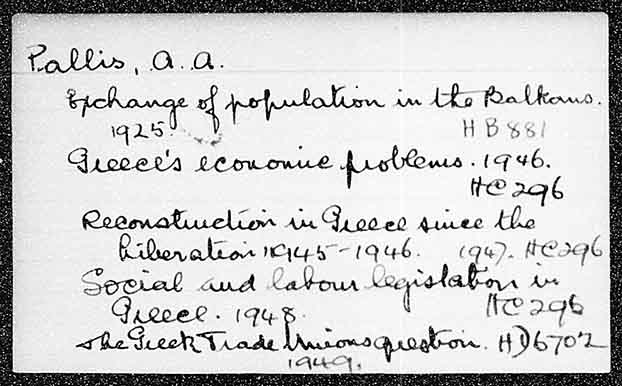 Pallis, A. A.
Exchange of population in the Balkans.
1925. HB881
Greece's economic problems. 1946.
HC296
Reconstruction in Greece since the
liberation 1945-1946. 1947. HC296
Social and labour legislation in
Greece. 1948. HC296
The Greek Trade Unions question. HD6702
1949.